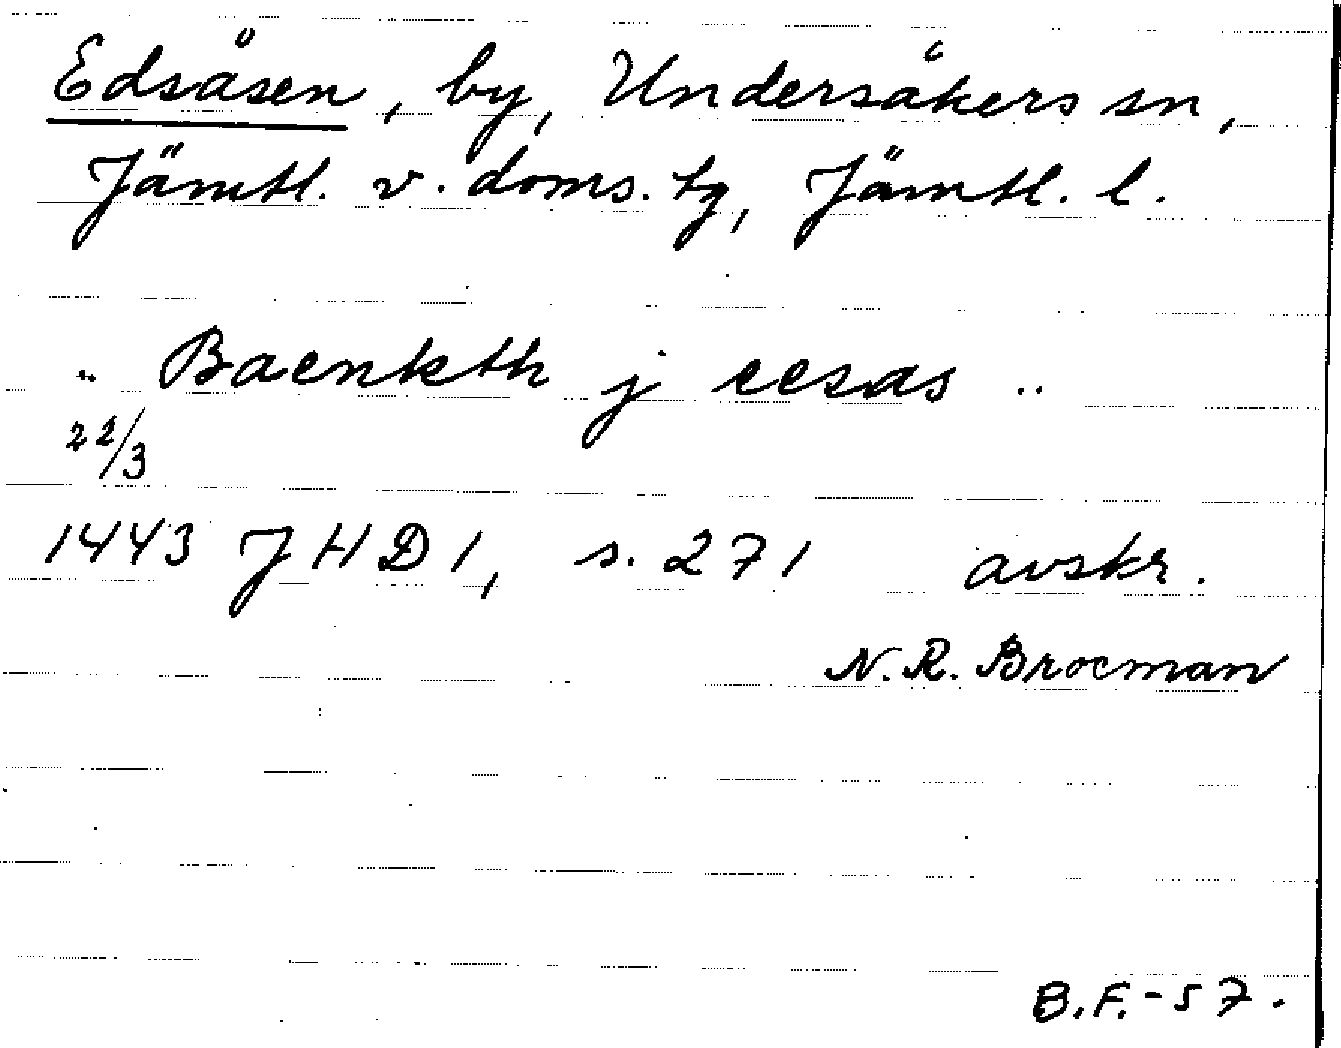 Edsåsen, by, Undersåkers sn,
Jämtl. v. doms. tg, Jämtl. l.
.. Baenkth j eesas ..
22/3
1443 JHD 1, s. 271 avskr.
N. R. Brocman
B.F.-57.